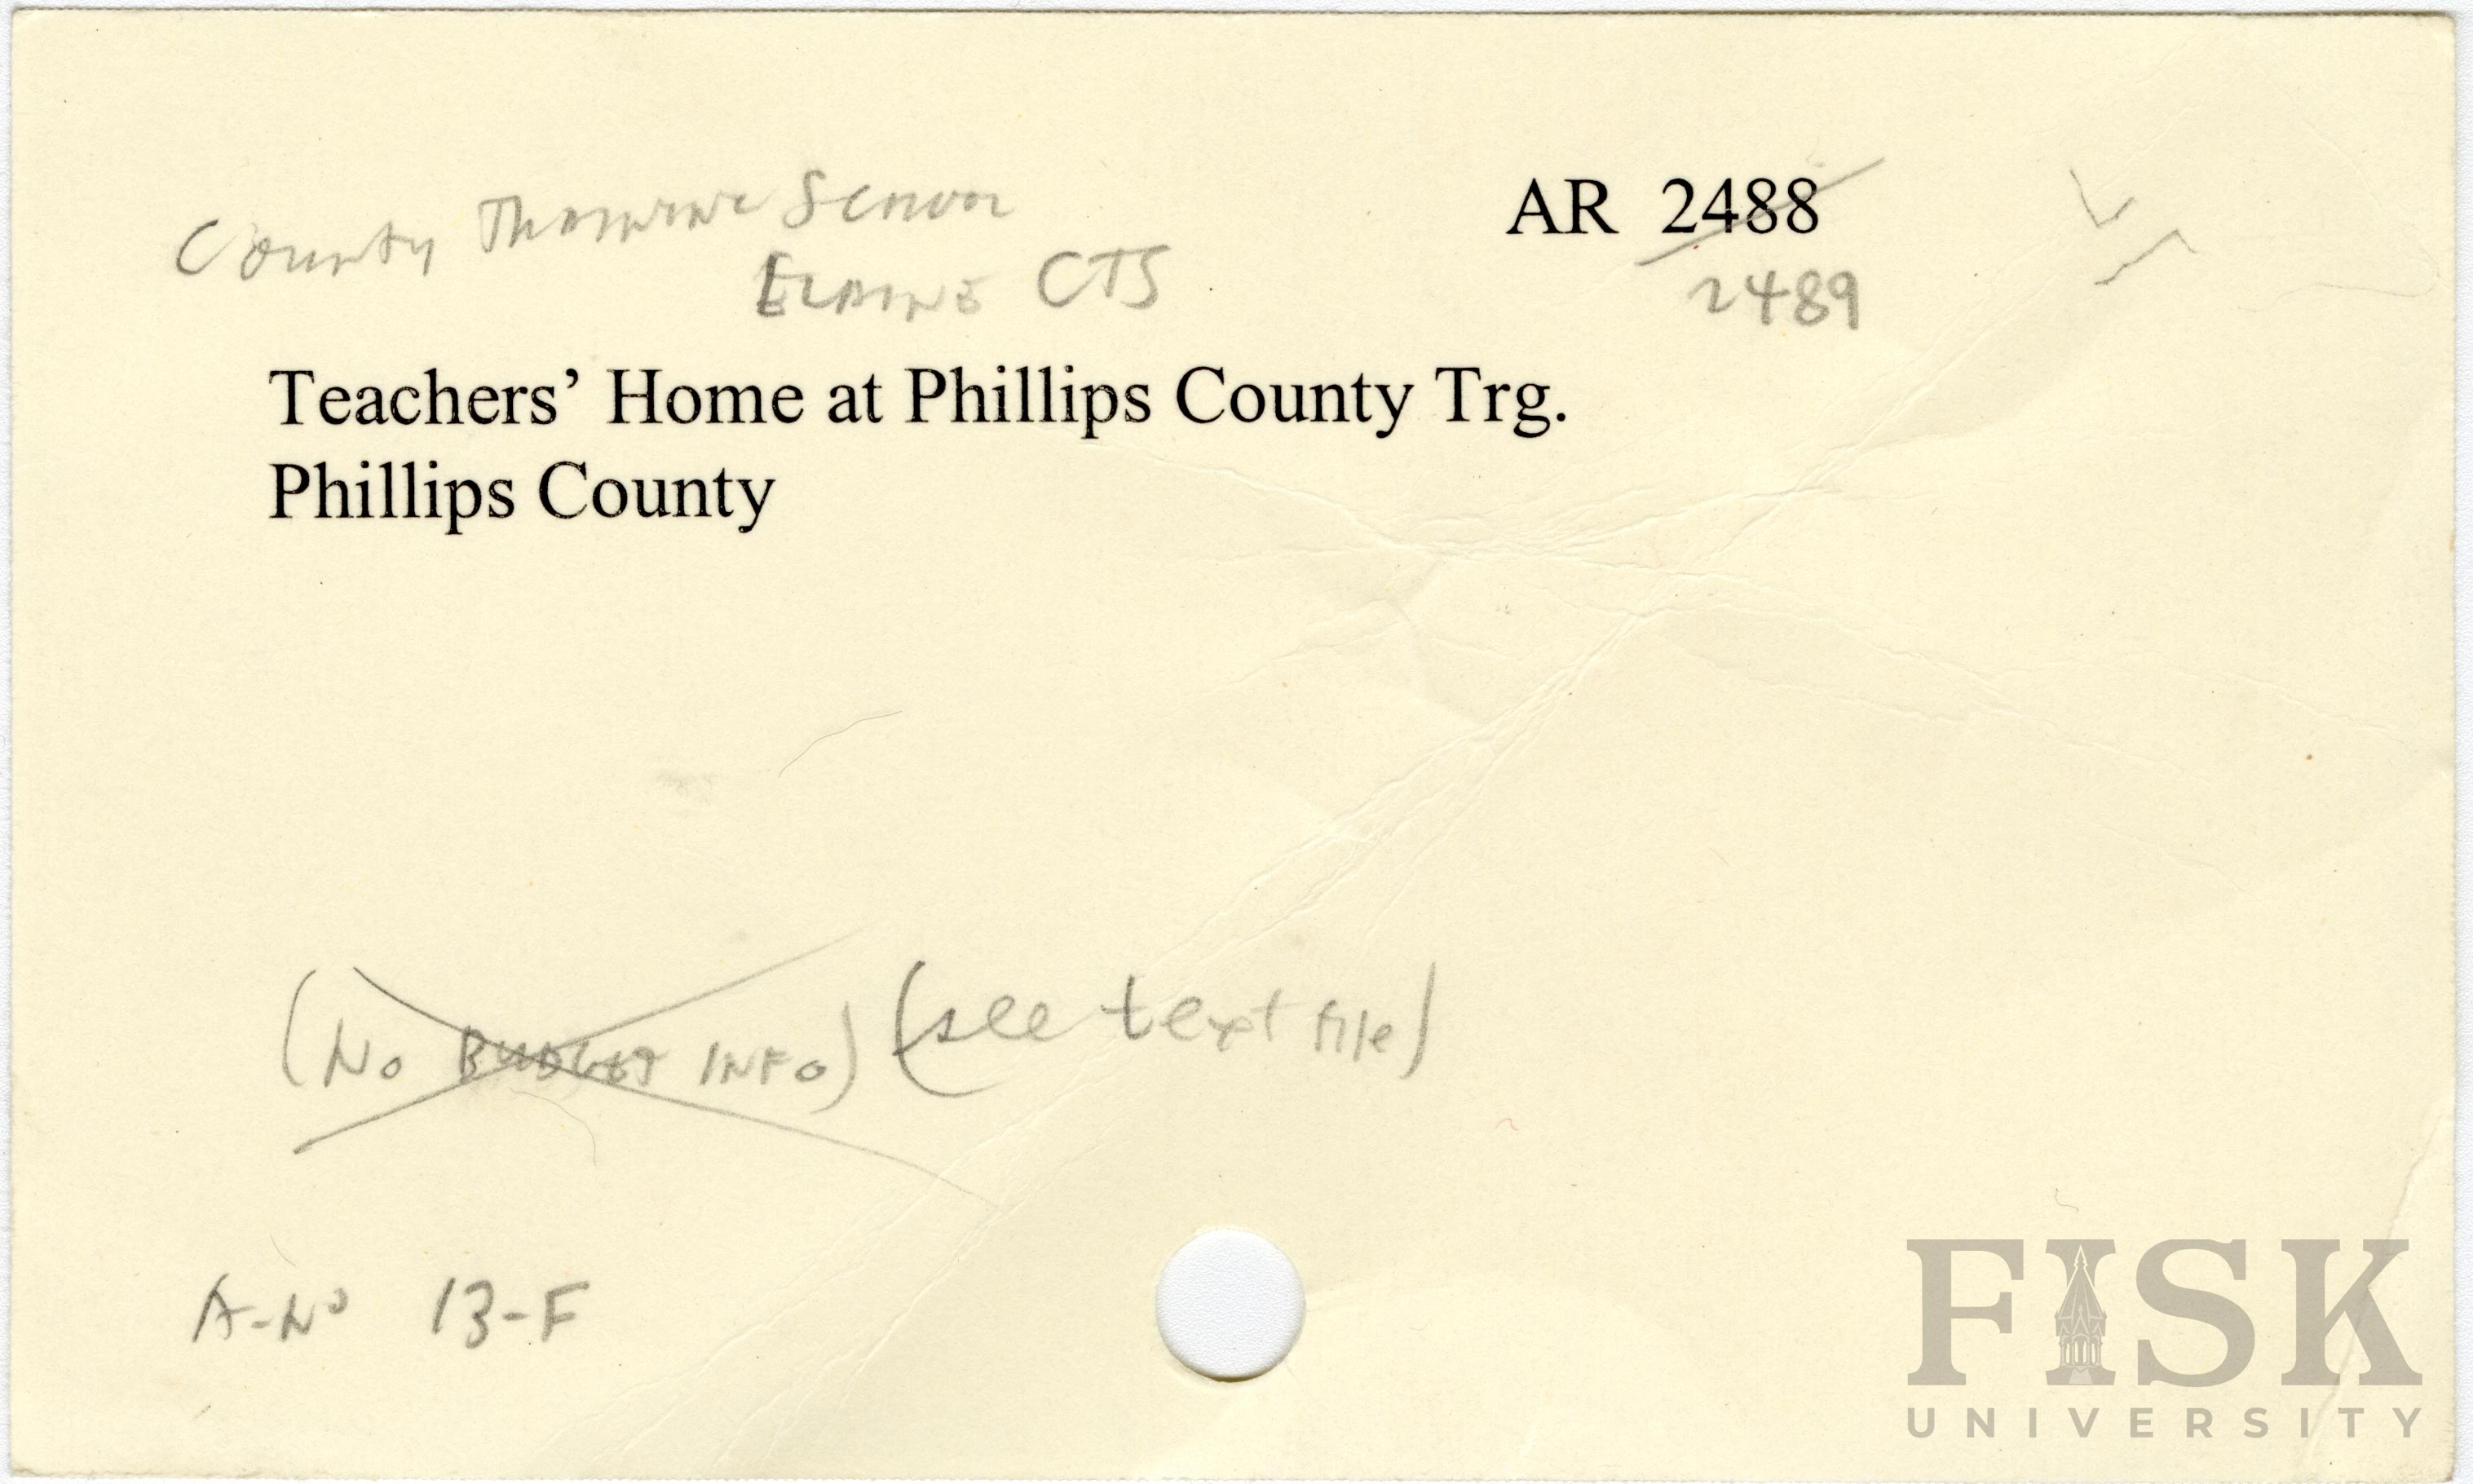 County Training School
AR 2488
Elaine CTS
2489
Teachers’ Home at Phillips County Trg.
Phillips County
(No Budget Info) (see text file)
A-No 13-F
FISK
UNIVERSITY